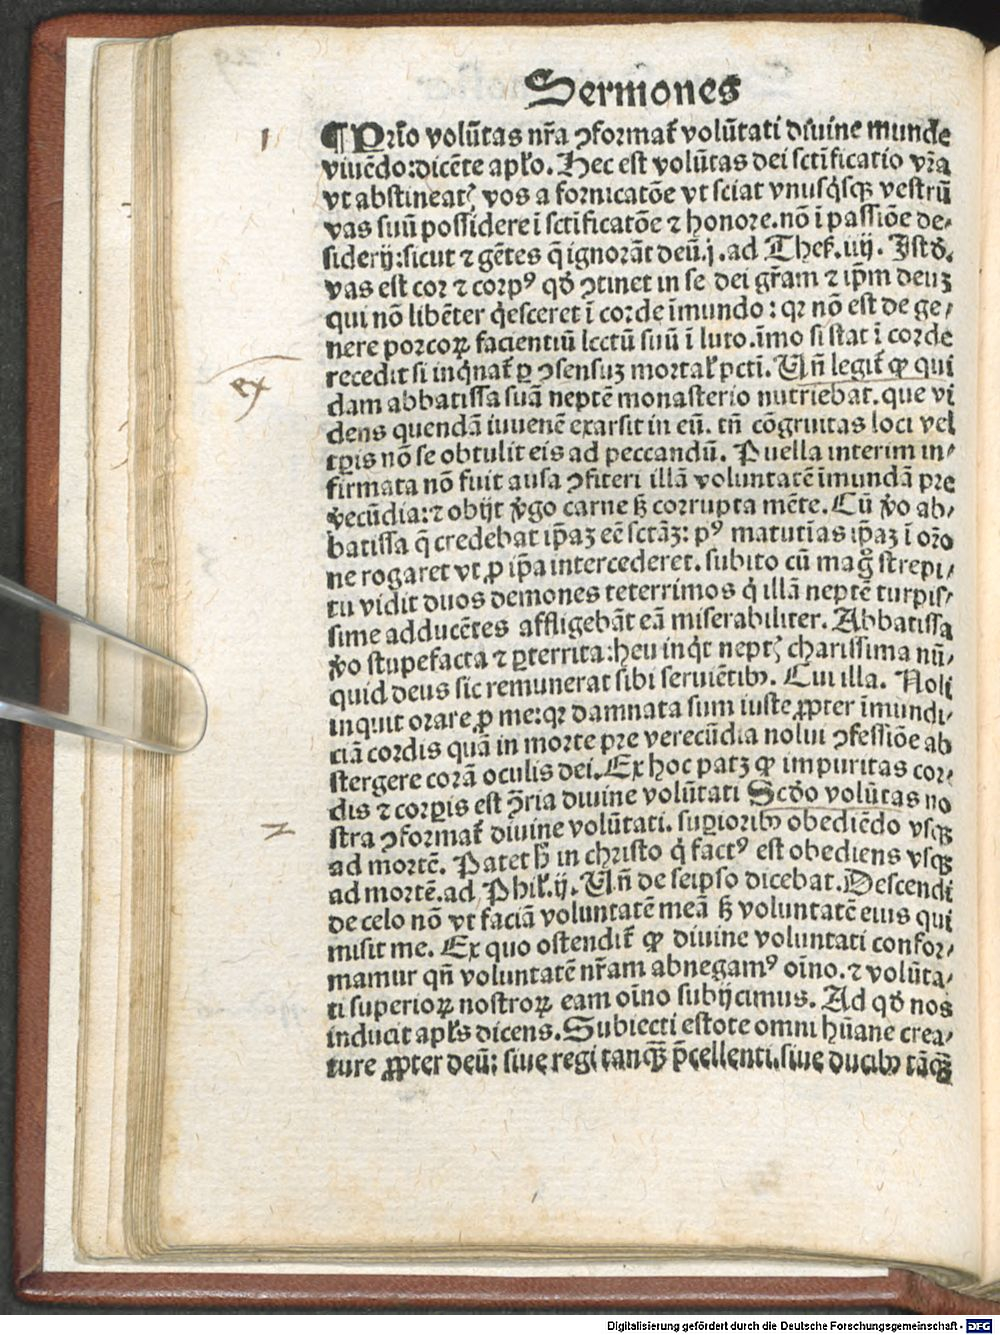 Sermones
1
¶ Prīo volūtas nr̄a ꝯformat᷑ volūtati diuine munde
viuēdo:dicēte apl̄o. Hec est volūtas dei sctīficatio vr̄a
vt abstineatꝭ vos a fornicatōe vt sciat vnusq̇sqꝫ vestrū
vas suū possidere ī sctīficatōe ⁊ honore.nō ī passiōe de⸗
siderij:sicut ⁊ gētes q̄ ignorāt deū.j.ad Thes̄.iiij. Istḋ.
vas est cor ⁊ corpꝰ qḋ ꝯtinet in se dei gr̄am ⁊ ip̄m deuꝫ
qui nō libēter q̇esceret ī corde īmundo: qꝛ nō est de ge⸗
nere porcoꝝ facientiū lectū suū ī luto.īmo si stat ī corde
recedit si inq̇nat᷑ ꝑ ꝯsensuꝫ mortal̄ pctī. Vn̄ legit᷑ ꝙ qui
ex
dam abbatissa suā neptē monasterio nutriebat.que vi
dens quendā iuuenē exarsit in eū. tn̄ cōgruitas loci vel
tꝑis nō se obtulit eis ad peccandū. Puella interim in⸗
firmata nō fuit ausa ꝯfiteri illā voluntatē īmundā pre
verecūdia:⁊ obijt v̇go carne sꝫ corrupta mēte. Cū v̇o ab⸗
batissa q̄ credebat ip̄aꝫ eē sctāꝫ: pꝰ matutīas ip̄aꝫ ī or̄o
ne rogaret vt ꝓ ip̄a intercederet. subito cū mag̊ strepi⸗
tu vidit duos demones teterrimos q̇ illā neptē turpis⸗
sime adducētes affligebāt eā miserabiliter. Abbatissa
v̇o stupefacta ⁊ ꝑterrita:heu inq̇t neptꝭ charissima nū⸗
quid deus sic remunerat sibi seruiētibꝰ. Cui illa. Noli
inquit orare ꝓ me:qꝛ damnata sum iuste ꝓpter īmundi⸗
ciā cordis quā in morte pre verecūdia nolui ꝯfessiōe ab
stergere corā oculis dei. Ex hoc patꝫ ꝙ impuritas cor⸗
dis ⁊ corꝑis est ꝯ̄ria diuine volūtati Scḋo volūtas no
2
stra ꝯformat᷑ diuine volūtati. suꝑioribꝰ obediēdo vsqꝫ
ad mortē. Patet hͦ in christo q̇ factꝰ est obediens vsqꝫ
ad mortē.ad Phil̄.ij. Vn̄ de seipso dicebat. Descendi
de celo nō vt faciā voluntatē meā sꝫ voluntatē eius qui
misit me. Ex quo ostendit᷑ ꝙ diuine voluntati confor⸗
mamur qn̄ voluntatē nr̄am abnegamꝰ oīno. ⁊ volūta⸗
ti superioꝝ nostroꝝ eam oīno subijcimus. Ad qḋ nos
inducit apl̄s dicens. Subiecti estote omni hūane crea⸗
ture ꝓpter deū: siue regi tanqꝫ̄ p̄cellenti.siue ducibꝰ tāqꝫ̄
Digitalisierung gefördert durch die Deutsche Forschungsgemeinschaft - DFG